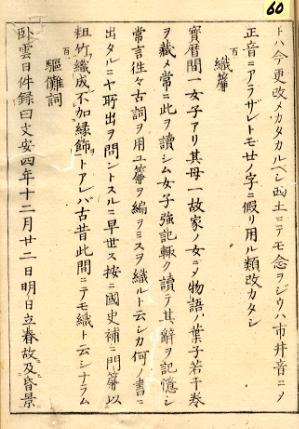 60
トハ今更改メカタカルベシ西土ニテモ念ヲジウハ市井音ニノ
正音ニアラザレトモ廿ノ字ニ假リ用ル類改カタシ
百
織簾
寳暦間一女子アリ其母一故家ノ女ニメ物語ノ葉子若干巻
ヲ藏メ常ニ此ヲ讀シム女子強記輙ク讀テ其辭ヲ記憶シ
常言往々古詞ヲ用ユ簾ヲ編ヲミスヲ織ルト云シカ何ノ書ニ
出タルニヤ所出ヲ問ントスルニ早世ス按ニ國史補ニ門簾以
粗竹織成不加縁飾トアレバ古昔此間ニテモ織ト云シナラム
百
驅儺詞
卧雲日件録曰文安四年十二月廿二日明日立春故及昏景